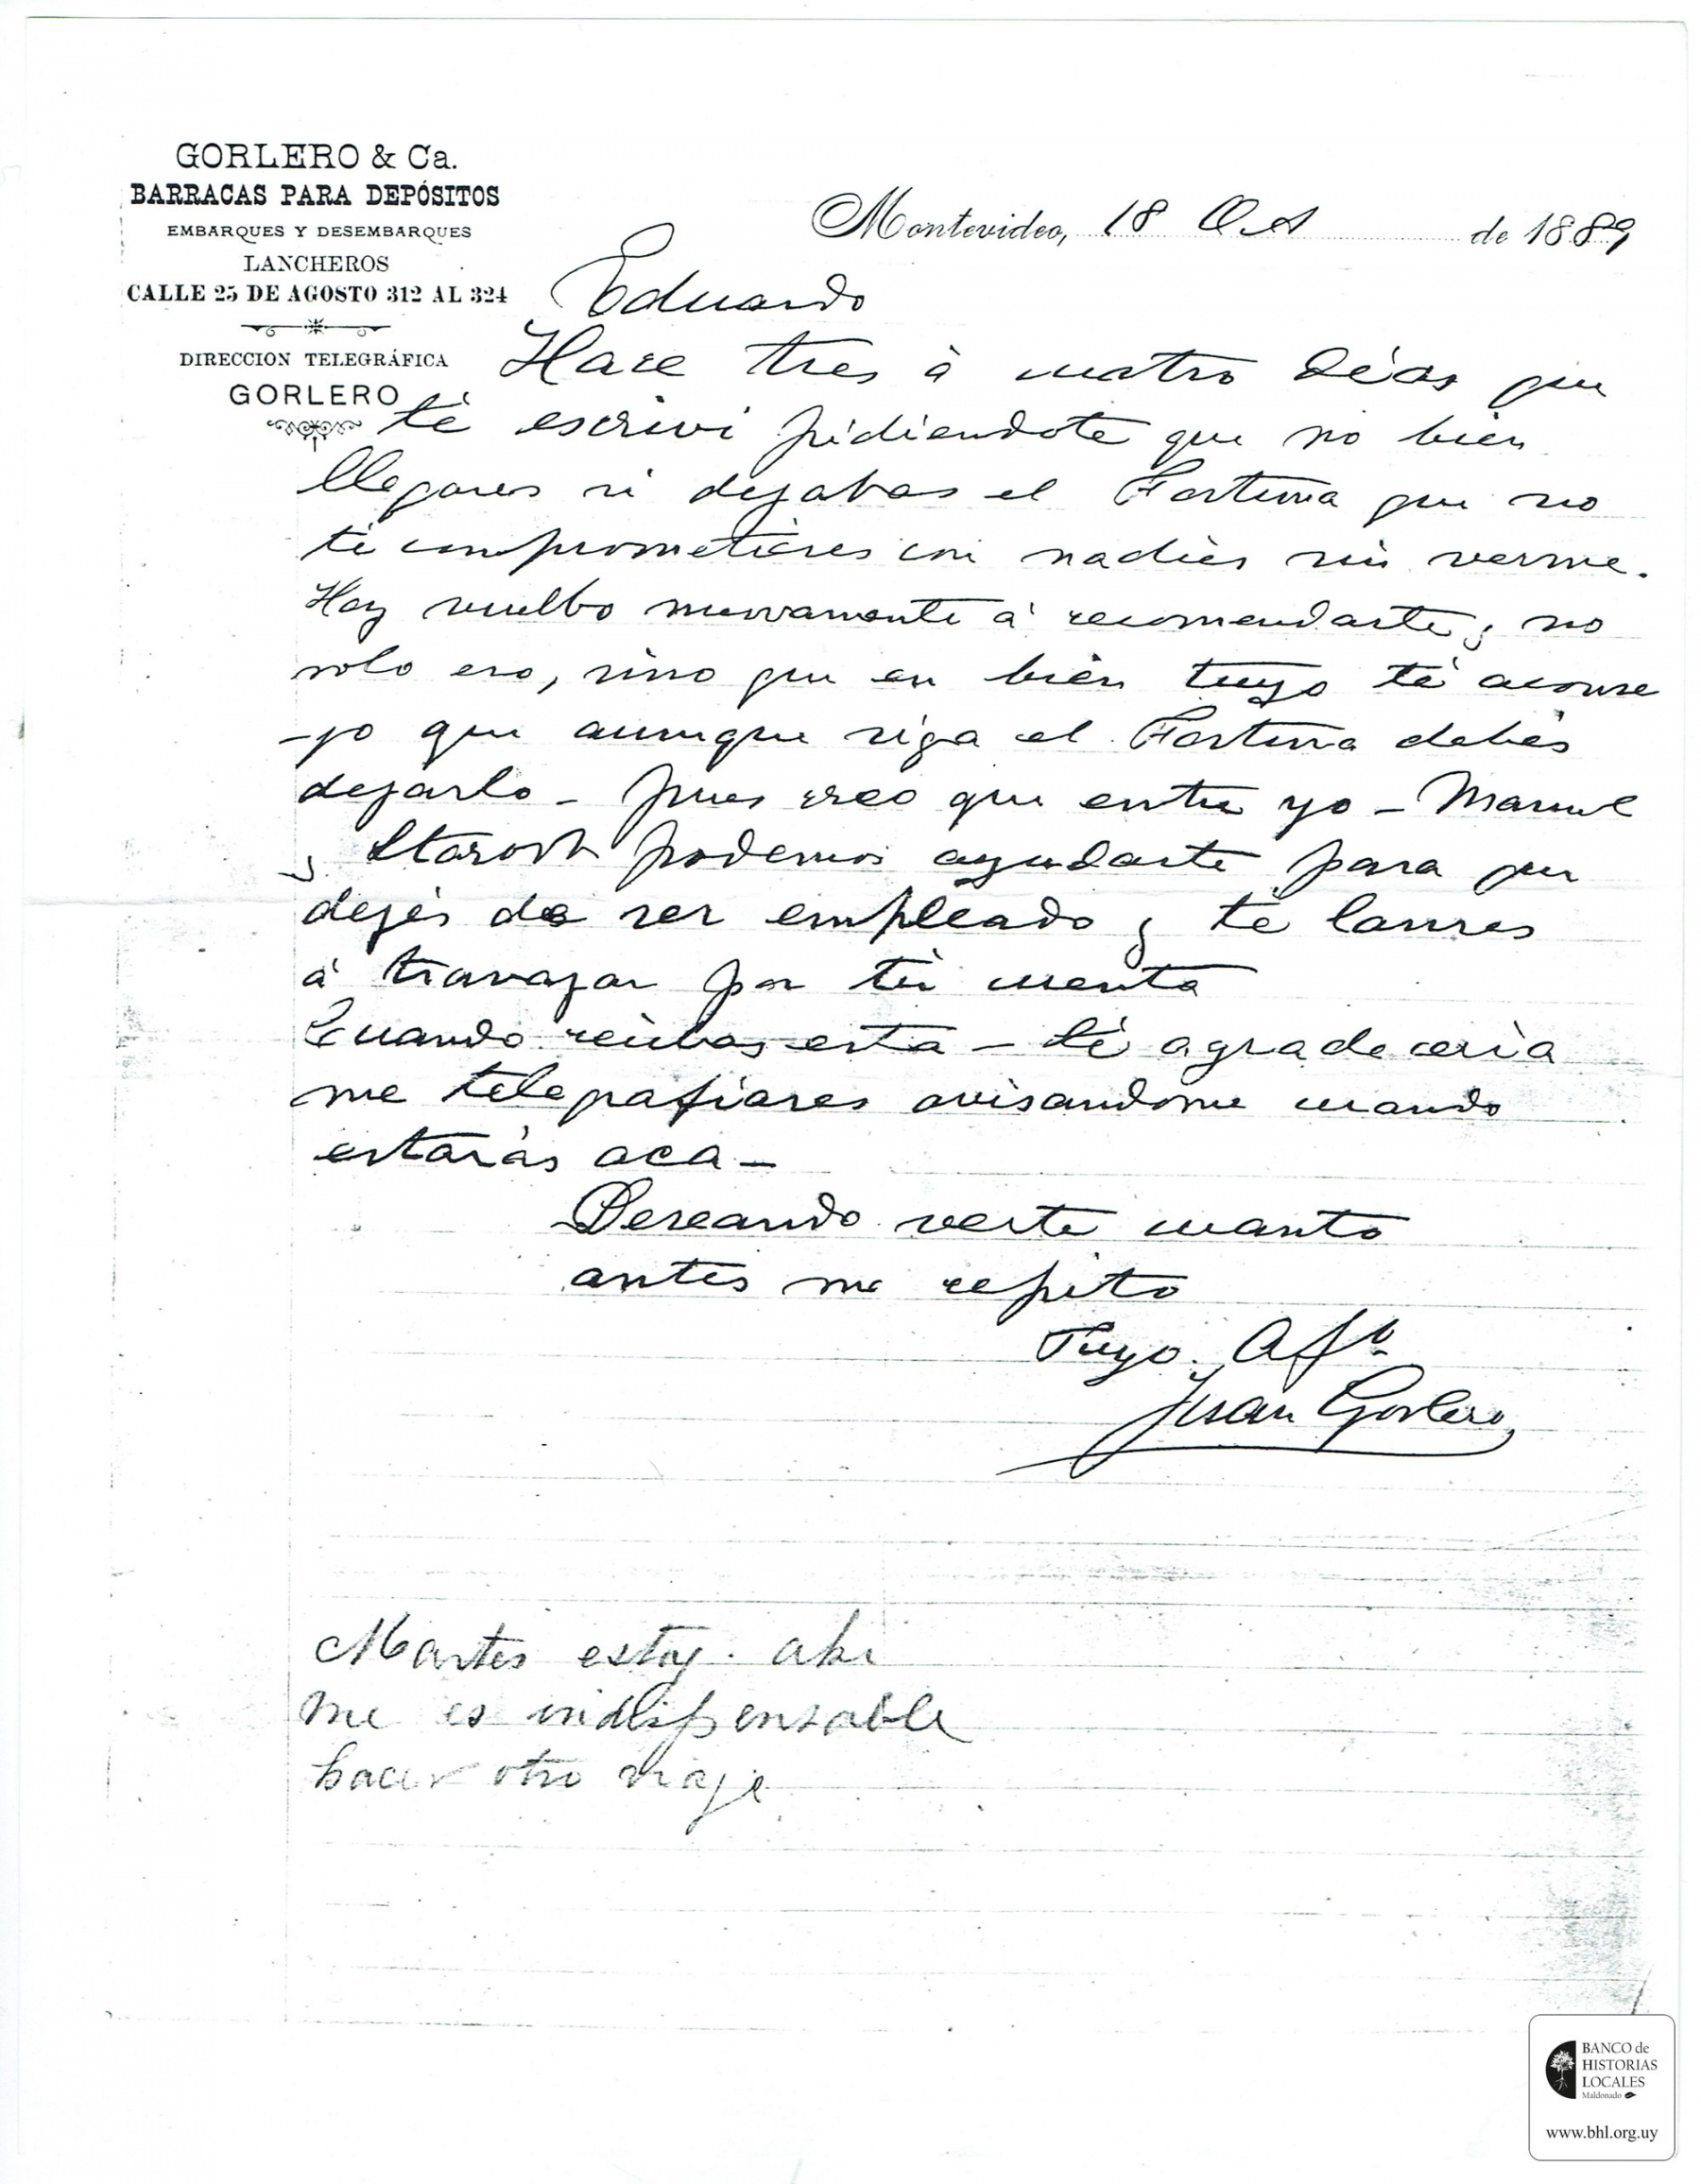 GORLERO & Ca.
BARRACAS PARA DEPÓSITOS
EMBARQUES Y DESEMBARQUES
LANCHEROS
CALLE 25 DE AGOSTO 312 AL 324
DIRECCION TELEGRÁFICA
GORLERO
Montevideo, 18 Oct de 1889
Eduardo
Hace tres á cuatro dias que
té escrivi pidiendote que no bien
llegares si dejabas el Fortuna que no
té comprometieres con nadies sin verme.
Hoy vuelbo nuevamente á recomendarte, no
solo eso, sino que en bien tuyo té aconse
-jo que aunque siga el Fortuna debés
dejarlo - pues creo que entre yo - Manuel
y podemos ayudarte para que
dejés de ser empleado y té lanses
á travajar por tú cuenta
Cuando recibas esta - té agradeceria
me telegrafiares avisandome cuando
estarás aca -
Deseando verte cuanto
antes me repito
Tuyo Afo.
Juan Gorlero
Martes estoy ahi
me es indispensable
hacer otro viaje
BANCO de
HISTORIAS
LOCALES
Maldonado
www.bhl.org.uy